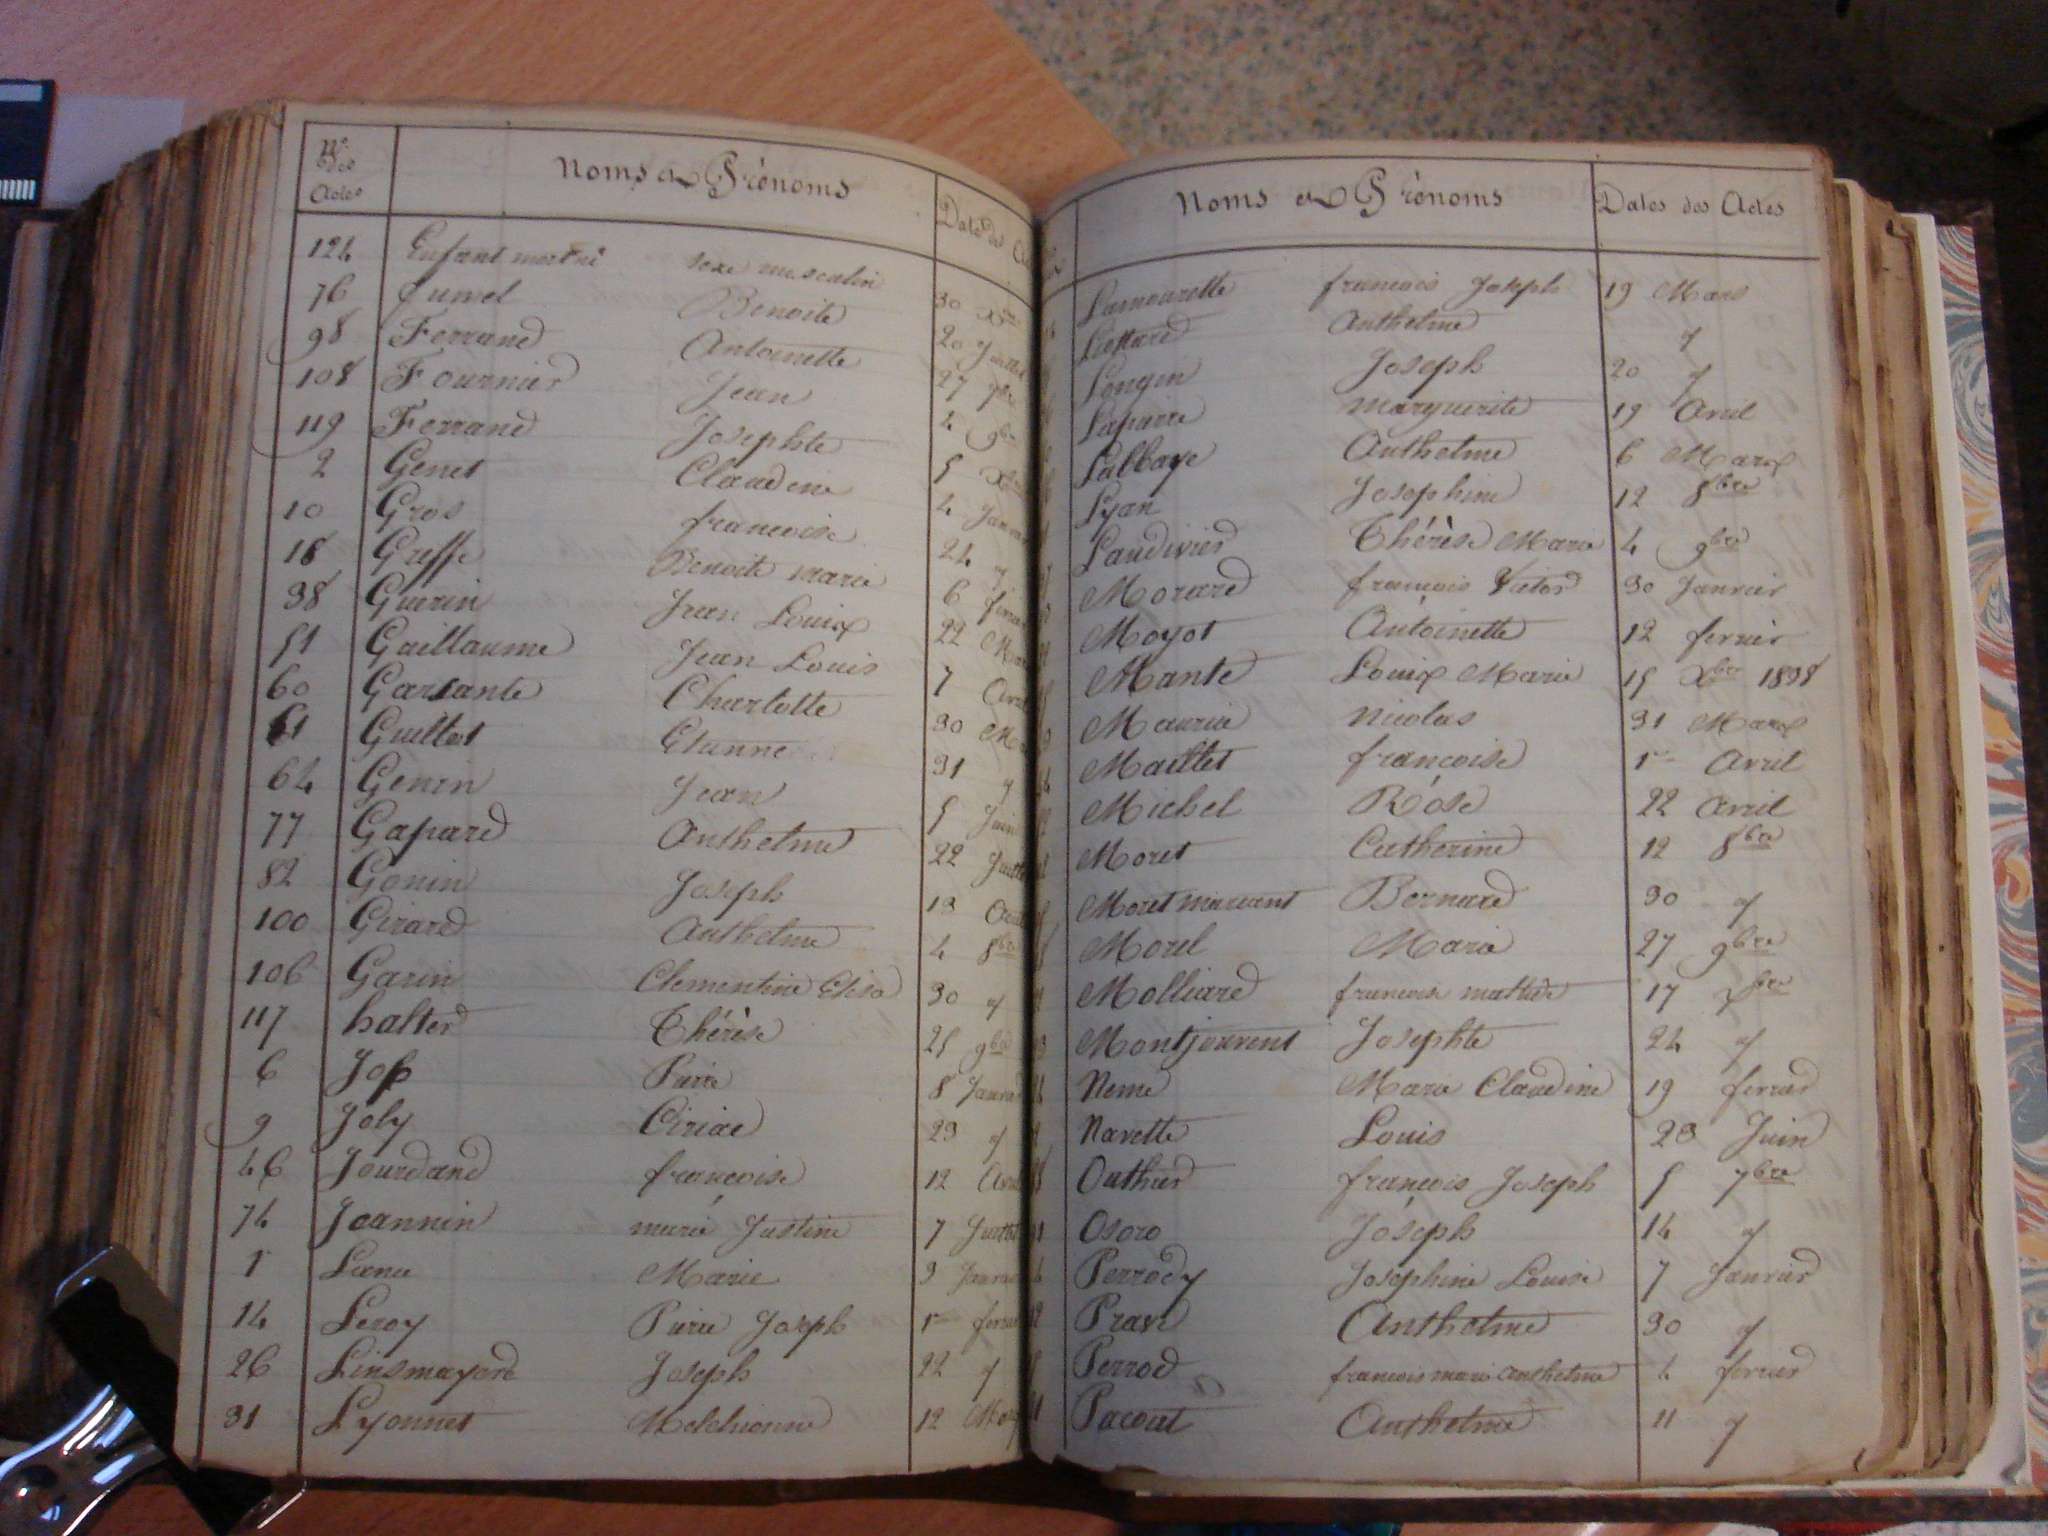 Nos des Actes Noms et Prénoms Dates des
124 Enfant mort né sexe masculin 30 Xbre
76 fumel Benoite 20 Juillet
98 Ferrand Antoinette 27
108 Fournier Jean 4 9bre
119 Ferrand Josephte 5 Xbre
2 Genet Claudine 4 Janvier
10 Gros francoise 24 "
18 Greffe Benoite marie 6 fevrier
38 Guerin Jean Louis 22 Mars
51 Guillaume Jean Louis 7 Avril
60 Garsante Charlotte 30
61 Guillot Etienne 31 "
64 Genin Jean 5 Juin
77 Gapard Anthelme 22 Juillet
82 Gonin Joseph 13 Aout
100 Girard Anthelme 4 8bre
106 Garin Clementine Elisa 30 "
117 halter Thérèse 25 9bre
6 Pierre 8 Janvier
9 Joly Ciriac 23 "
46 Jourdand françoise 12 Avril
74 Joannin marie Justine 7 Juillet
1r Marie 3 Janvier
14 Leroy Pierre Joseph 1er fevrier
26 Linsmayard Joseph 22 "
31 Lyonnet Melchionne 12
Noms et Prénoms Dates des Actes
Lamourette francois Joseph 19 Mars
Anthelme "
Longin Joseph 20 "
Lapierre Marguerite 19 Avril
Lalbaye Anthelme 6
Lyan Josephine 12 8bre
Laudivier Thérèse Marie 4 9bre
Morard françois Victor 30 Janvier
Moyot Antoinette 12 fevrier
Mante Louis Marie 15 Xbre 1838
Maurin Nicolas 31 Mars
Maillet françoise 1er Avril
Michel Rose 22 avril
Moret Catherine 12 8bre
Moret marcent Bernard 30 "
Morel Marie 27 9bre
Molliard francois 17
Montjouvent Josephte 24 "
Neme Marie Claudine 19 fevrier
Navette Louis 23 Juin
Outhier françois Joseph 5 7bre
Osoro Joseph 14 "
Perrody Josephine Louise 7 Janvier
Anthelme 30 "
Perrod francois marie anthelme 4 fevrier
Pacout Anthelme 11 "